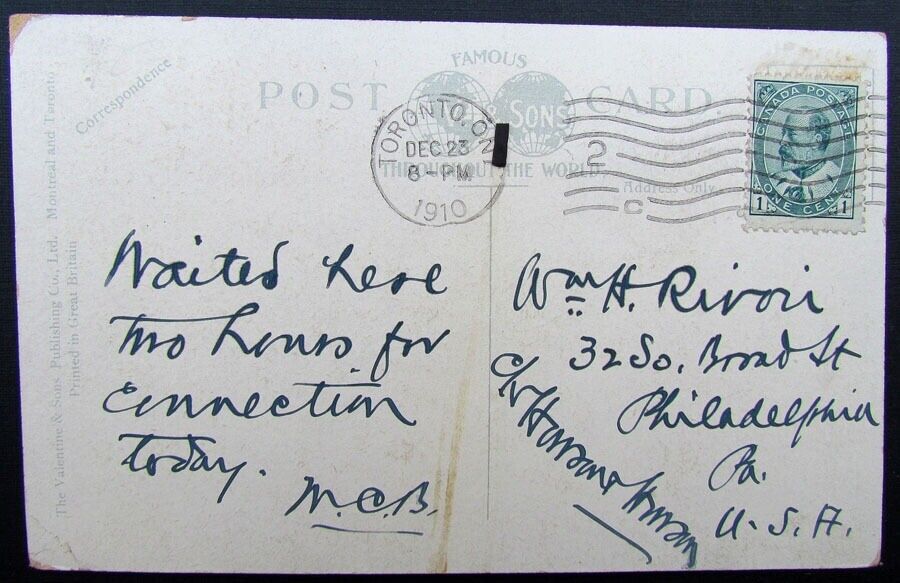 The Valentine & Sons Publishing Co., Ltd. Montreal and Toronto
Printed in Great Britain
Correspondence
FAMOUS
POST CARD
& SONS
THROUGHOUT THE WORLD
Address Only
TORONTO, O
DEC 23 2
8 - PM
1910
2
C
CANADA POSTAGE
1 ONE CENT 1
Waited here
two hours for
Connection
today.
W.C.B.
Wm H. Rivoir
32 So. Broad St
Philadelphia
Pa.
U.S.A.
c/o